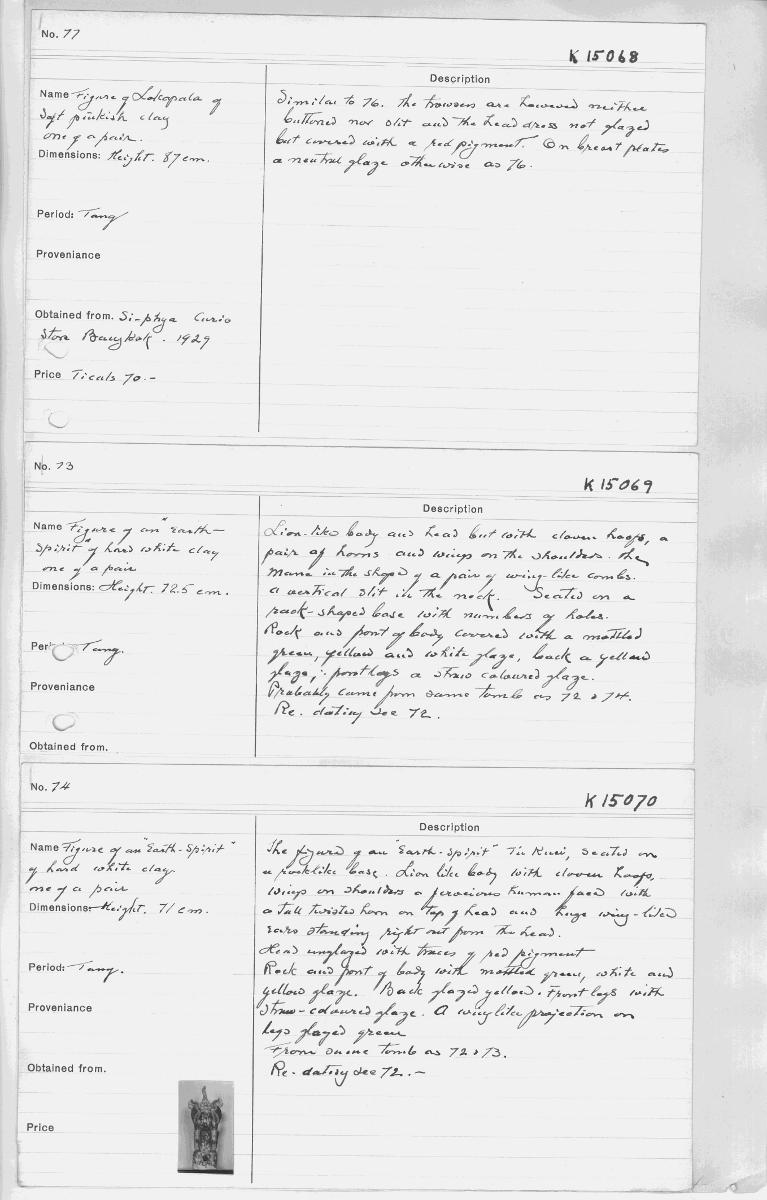 No. 77
K 15068
Name Figure of Lokapala of
soft pinkish clay
one of a pair.
Dimensions: Height. 87 cm.
Period: Tang
Proveniance
Obtained from. Si-phya Curio
Store Bangkok. 1929
Price Ticals 70.-
Description
Similar to 76. the trowsers are however neither
buttoned nor slit and the head dress not glazed
but covered with a red pigment. On breast plates
a neutral glaze otherwise as 76.
No. 73
K 15069
Name Figure of an "Earth-
Spirit" of hard white clay
one of a pair
Dimensions: Height. 72.5 cm.
Tang.
Proveniance
Obtained from.
Description
Lion-like body and head but with cloven hoofs, a
pair of horns and wings on the shoulders. the
mane in the shape of a pair of wing-like combs.
a vertical slit in the neck. Seated on a
rock-shaped base with numbers of holes.
Rock and front of body covered with a mottled
green, yellow and white glaze, back a yellow
glaze; frontlegs a straw coloured glaze.
Probably came from same tomb as 72 & 74.
Re. dating see 72.
No. 74
K 15070
Name Figure of an "Earth-Spirit"
of hard white clay.
one of a pair
Dimensions: Height. 71 cm.
Period: Tang.
Proveniance
Obtained from.
Price
Description
The figure of an "Earth-Spirit" Tu Kuei, seated on
a rocklike base. Lion like body with cloven hoofs,
wings on shoulders a ferocious human face with
a tall twisted horn on top of head and huge wing-like
ears standing right out from the head.
Head unglazed with traces of red pigment
Rock and front of body with mottled green, white and
yellow glaze. Back glazed yellow. Front legs with
straw-coloured glaze. A winglike projection on
legs glazed green
From same tomb as 72 & 73.
Re. dating see 72.-